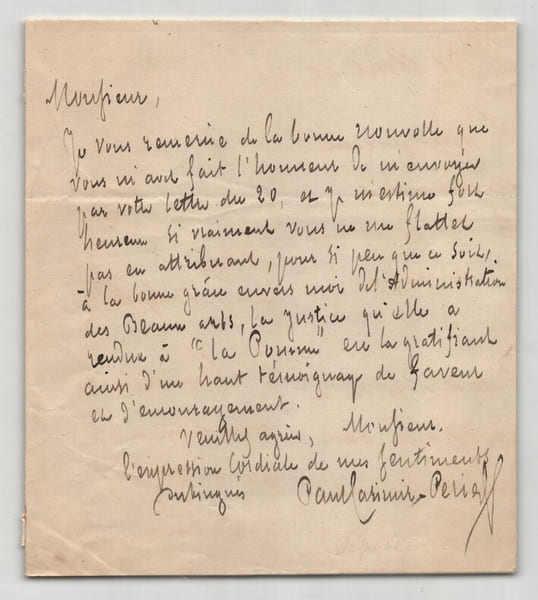 Monsieur,
Je vous remercie de la bonne nouvelle que
vous m'avez fait l'honneur de m'envoyer
par votre lettre du 20, et je m'estime fort
heureux si vraiment vous ne me flattez
pas en attribuant, pour si peu que ce soit,
à la bonne grâce envers moi de l'Administration
des Beaux arts, la justice qu'elle a
rendue à "la" en la gratifiant
ainsi d'un haut témoignage de faveur
et d'encouragement.
Veuillez agréer, Monsieur,
l'expression cordiale de mes sentiments
distingués Paul Casimir-Perier